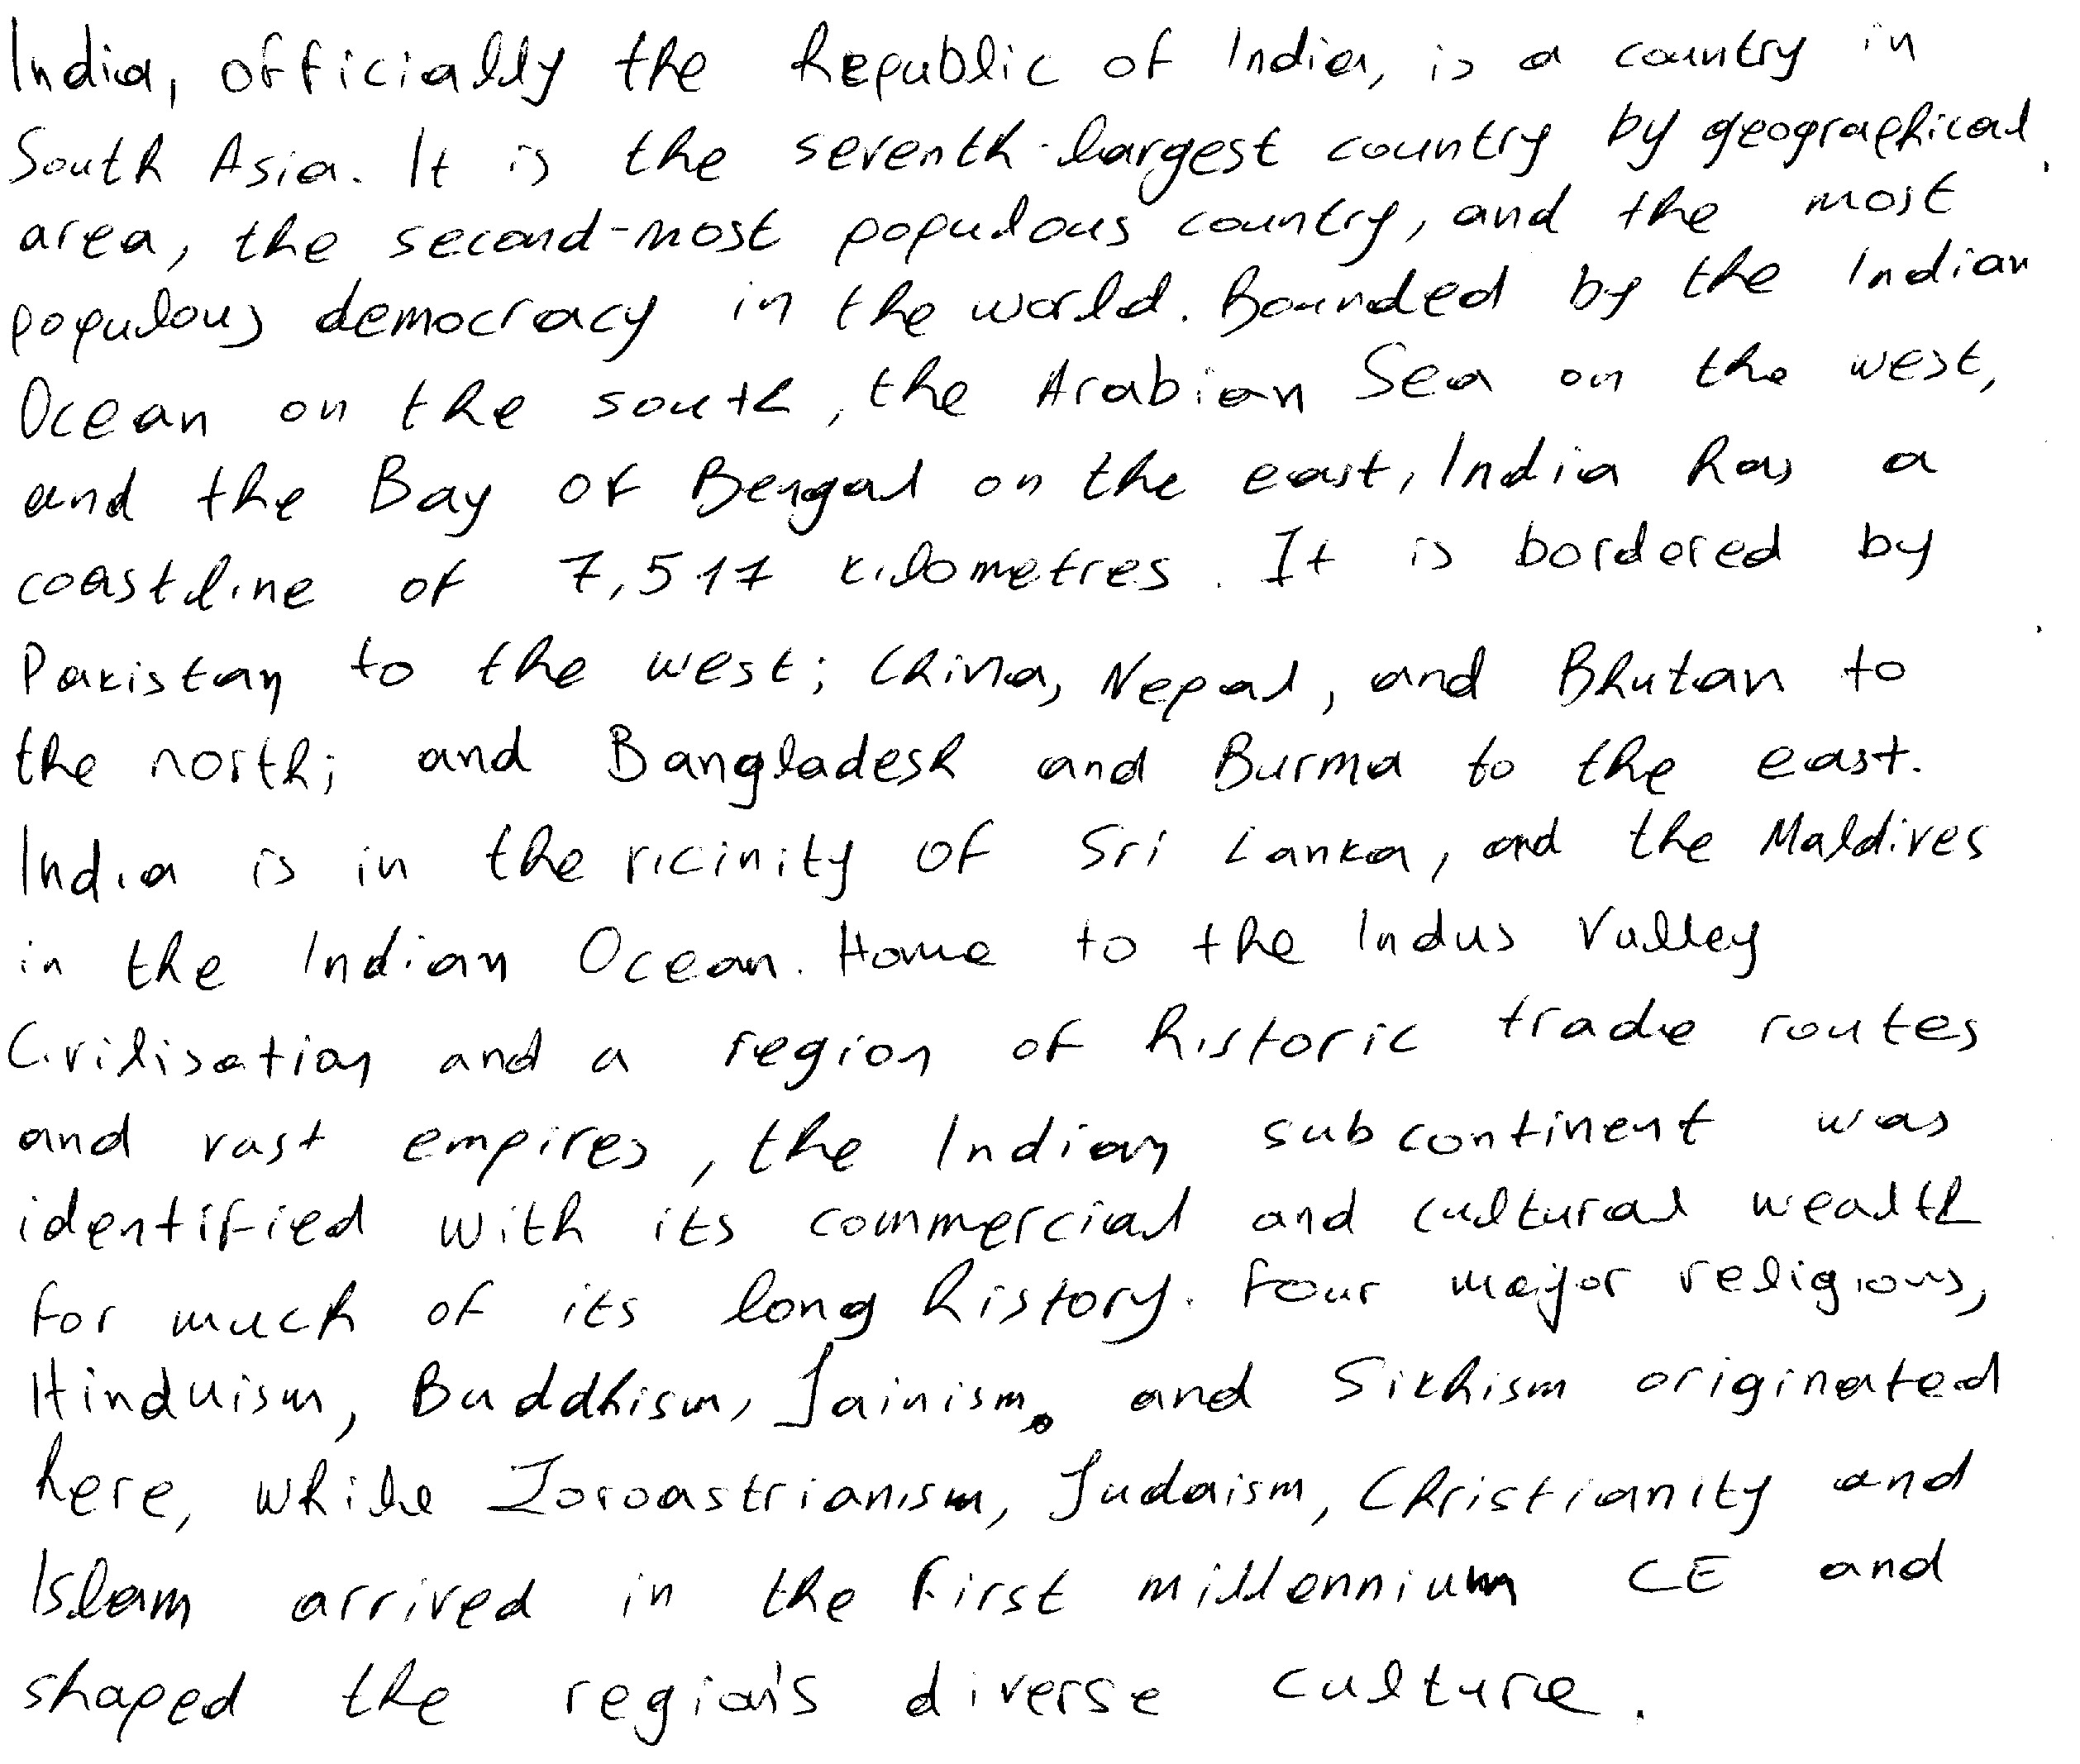 India, officially the Republic of India, is a country in
South Asia. It is the seventh-largest country by geographical
area, the second-most populous country, and the most
populous democracy in the world. Bounded by the Indian
Ocean on the south, the Arabian Sea on the west,
and the Bay of Bengal on the east, India has a
coastline of 7,517 kilometres. It is bordered by
Pakistan to the west; China, Nepal, and Bhutan to
the north; and Bangladesh and Burma to the east.
India is in the vicinity of Sri Lanka, and the Maldives
in the Indian Ocean. Home to the Indus Valley
Civilisation and a region of historic trade routes
and vast empires, the Indian subcontinent was
identified with its commercial and cultural wealth
for much of its long history. Four major religions,
Hinduism, Buddhism, Jainism, and Sikhism originated
here, while Zoroastrianism, Judaism, Christianity and
Islam arrived in the first millennium CE and
shaped the region's diverse culture.